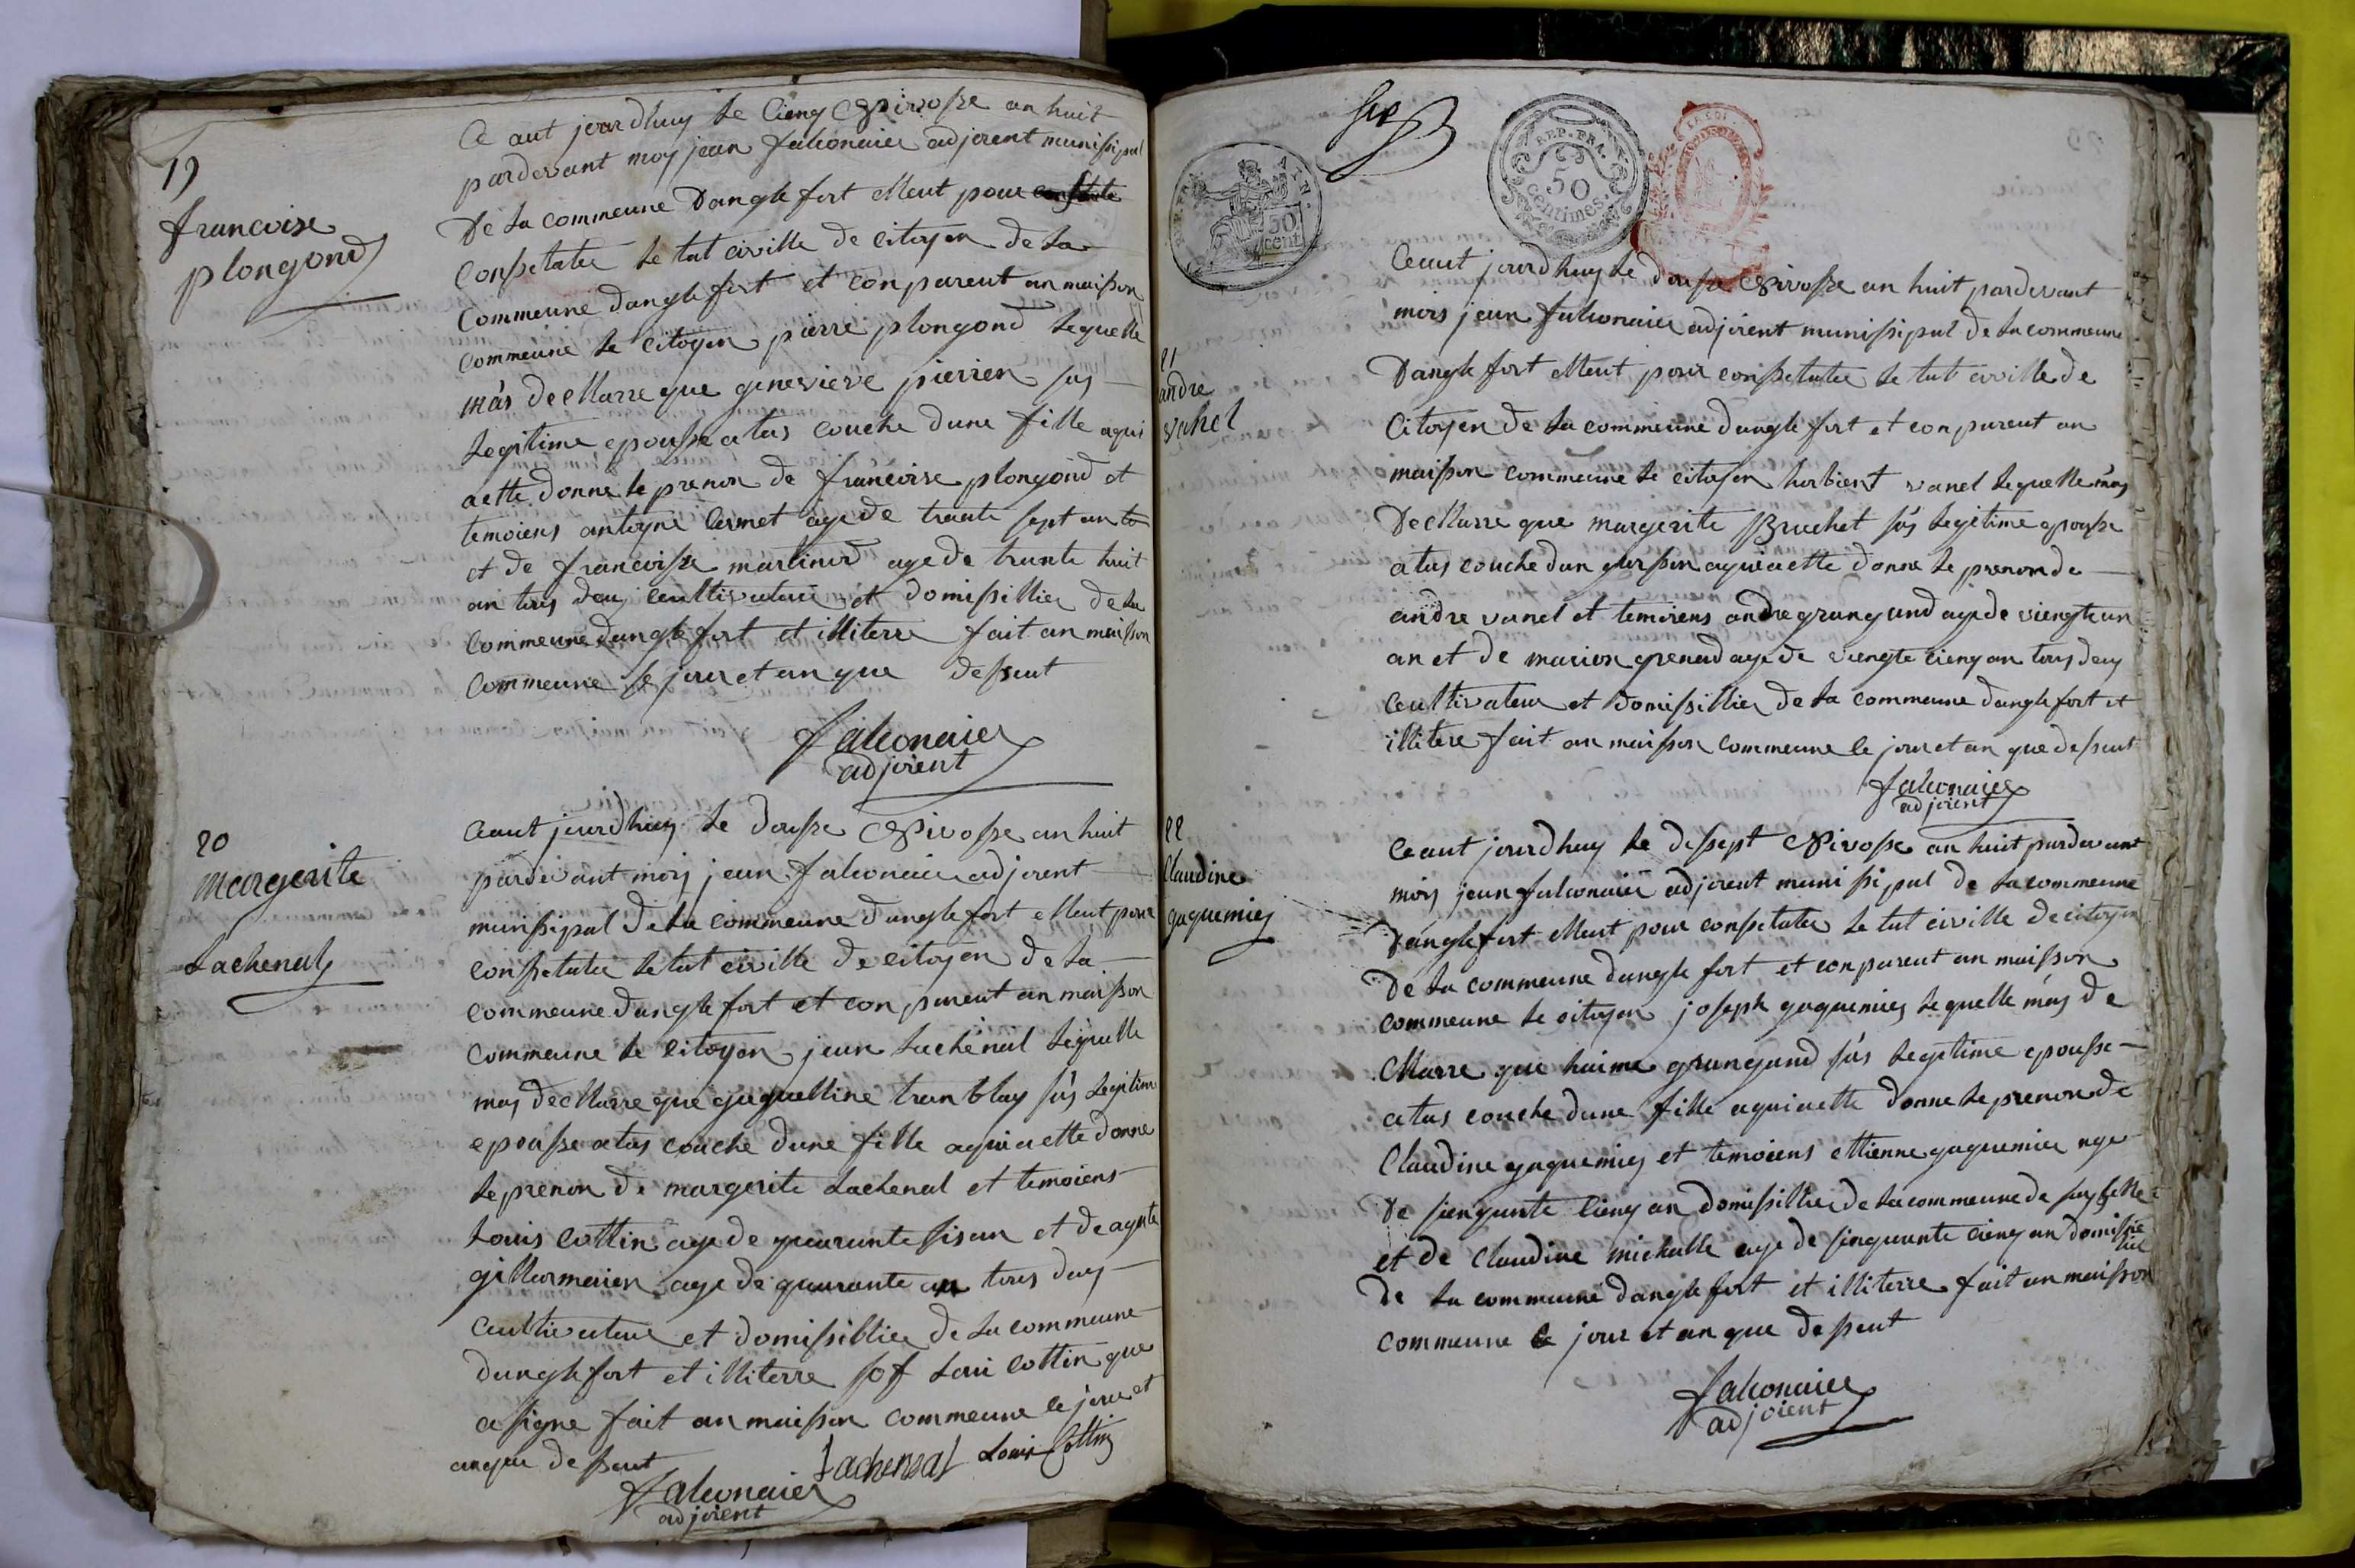 19
francoise
plongond
Ce aut jourdhuy le cienq Nivosse an huit
pardevant moy jean falconaier adjoient munissipal
De la commeune Danglefort elleut pour
Conssetatee le tat civille de citoyen de la
Commeune danglefort et conpareut an maisson
Commeune le citoyen pierre plongond lequelle
m'as decllarre que genevieve pierren sas
legitime epousse atas couche dune fille aqui
aette donne le prenon de francoise plongond et
temoiens antoyne Cermet age de trante sept an
et de francoisse martinod age de trante huit
an tous deu ceultivateur et domissillier de la
Commeune danglefort et illiterre fait an maisson
Commeune le jour et an que dessent
falconaier
adjoient
20
margerite
Lachenal
Ceaut jourdhuy le dousse Nivosse an huit
pardevant moy jean falconaier adjoient
munissipal de la commeune danglefort elleut pour
Conssetatee le tat civille de citoyen de la
commeune danglefort et conpareut an maisson
Commeune le citoyen jean Lachenal lequelle
mas decllarre que jaquelline tranblay sas legitime
epousse atas couche dune fille aqui aette donne
le prenon de margerite Lachenal et temoiens
Louis cottin age de quarante sis an et de agate
gillermaien age de quarante an tous deuy
Ceultivateur et domissillier de la commeune
danglefort et illiterre sof Loui cottin que
a signe fait an maisson commeune le jour et
anque dessent
Lachensal Louis Cottin
falconaier
adjoient
REP. FRA.
50
cent
REP. FRA.
50
centimes.
21
andre
vanel
Ceaut jourdhuy le dousse Nivosse an huit pardevant
mois jean falconaier adjoient munissipal de la commeune
Danglefort elleut pour conssetatee le tat civille de
Citoyen de la commeune danglefort et conpareut an
maisson commeune le citoyen horbient vanel lequelle m'as
Decllarre que margerite Bruchet sas legitime epousse
atas couche dun garsson aquiaette donne le prenon de
andre vanel et temoiens andre grangand age de viengte un
an et de marion grenad age de viengte cienq an tous deuy
Ceultivateur et domissillier de la commeune danglefort et
illitere fait an maisson commeune le jour et an que dessent
falconaier
adjoient
22
Claudine
jaquemiey
Ceaut jourdhuy le dissept Nivosse an huit pardevant
mois jean falconaier adjoient munissipal de la commeune
Danglefort elleut pour conssetatee le tat civille de citoyen
De la commeune danglefort et conpareut an maisson
commeune le citoyen joseph jaquemiey lequelle m'as de
Cllarre que haime grangand sas legitime epousse
atas couche dune fille aquiaette donne le prenon de
Claudine jaquemiey et temoiens ettienne jaquemier age
De sienqunte cienq an domissillier de la commeune de
et de Claudine michalle age de sinquante cienq an domissillie
De la commeune danglefort et illiterre fait an maisson
commeune le jour et an que dessent
falconaier
adjoient